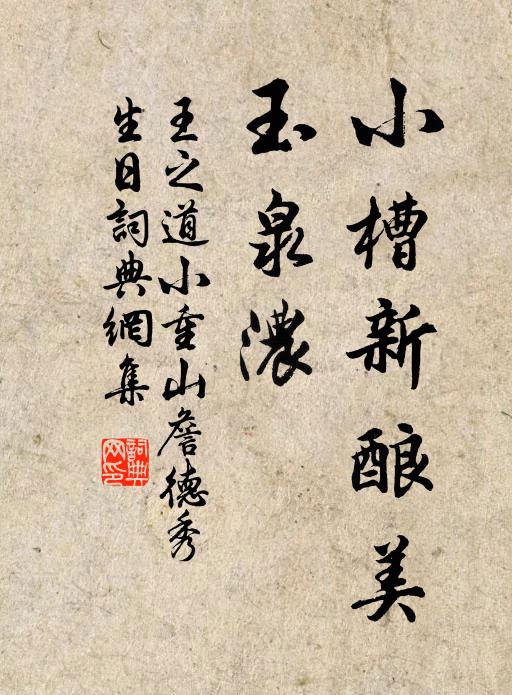 小槽新酿美
玉泉濃
王之道小重山詹德秀
生日詞典網集
詞典网印